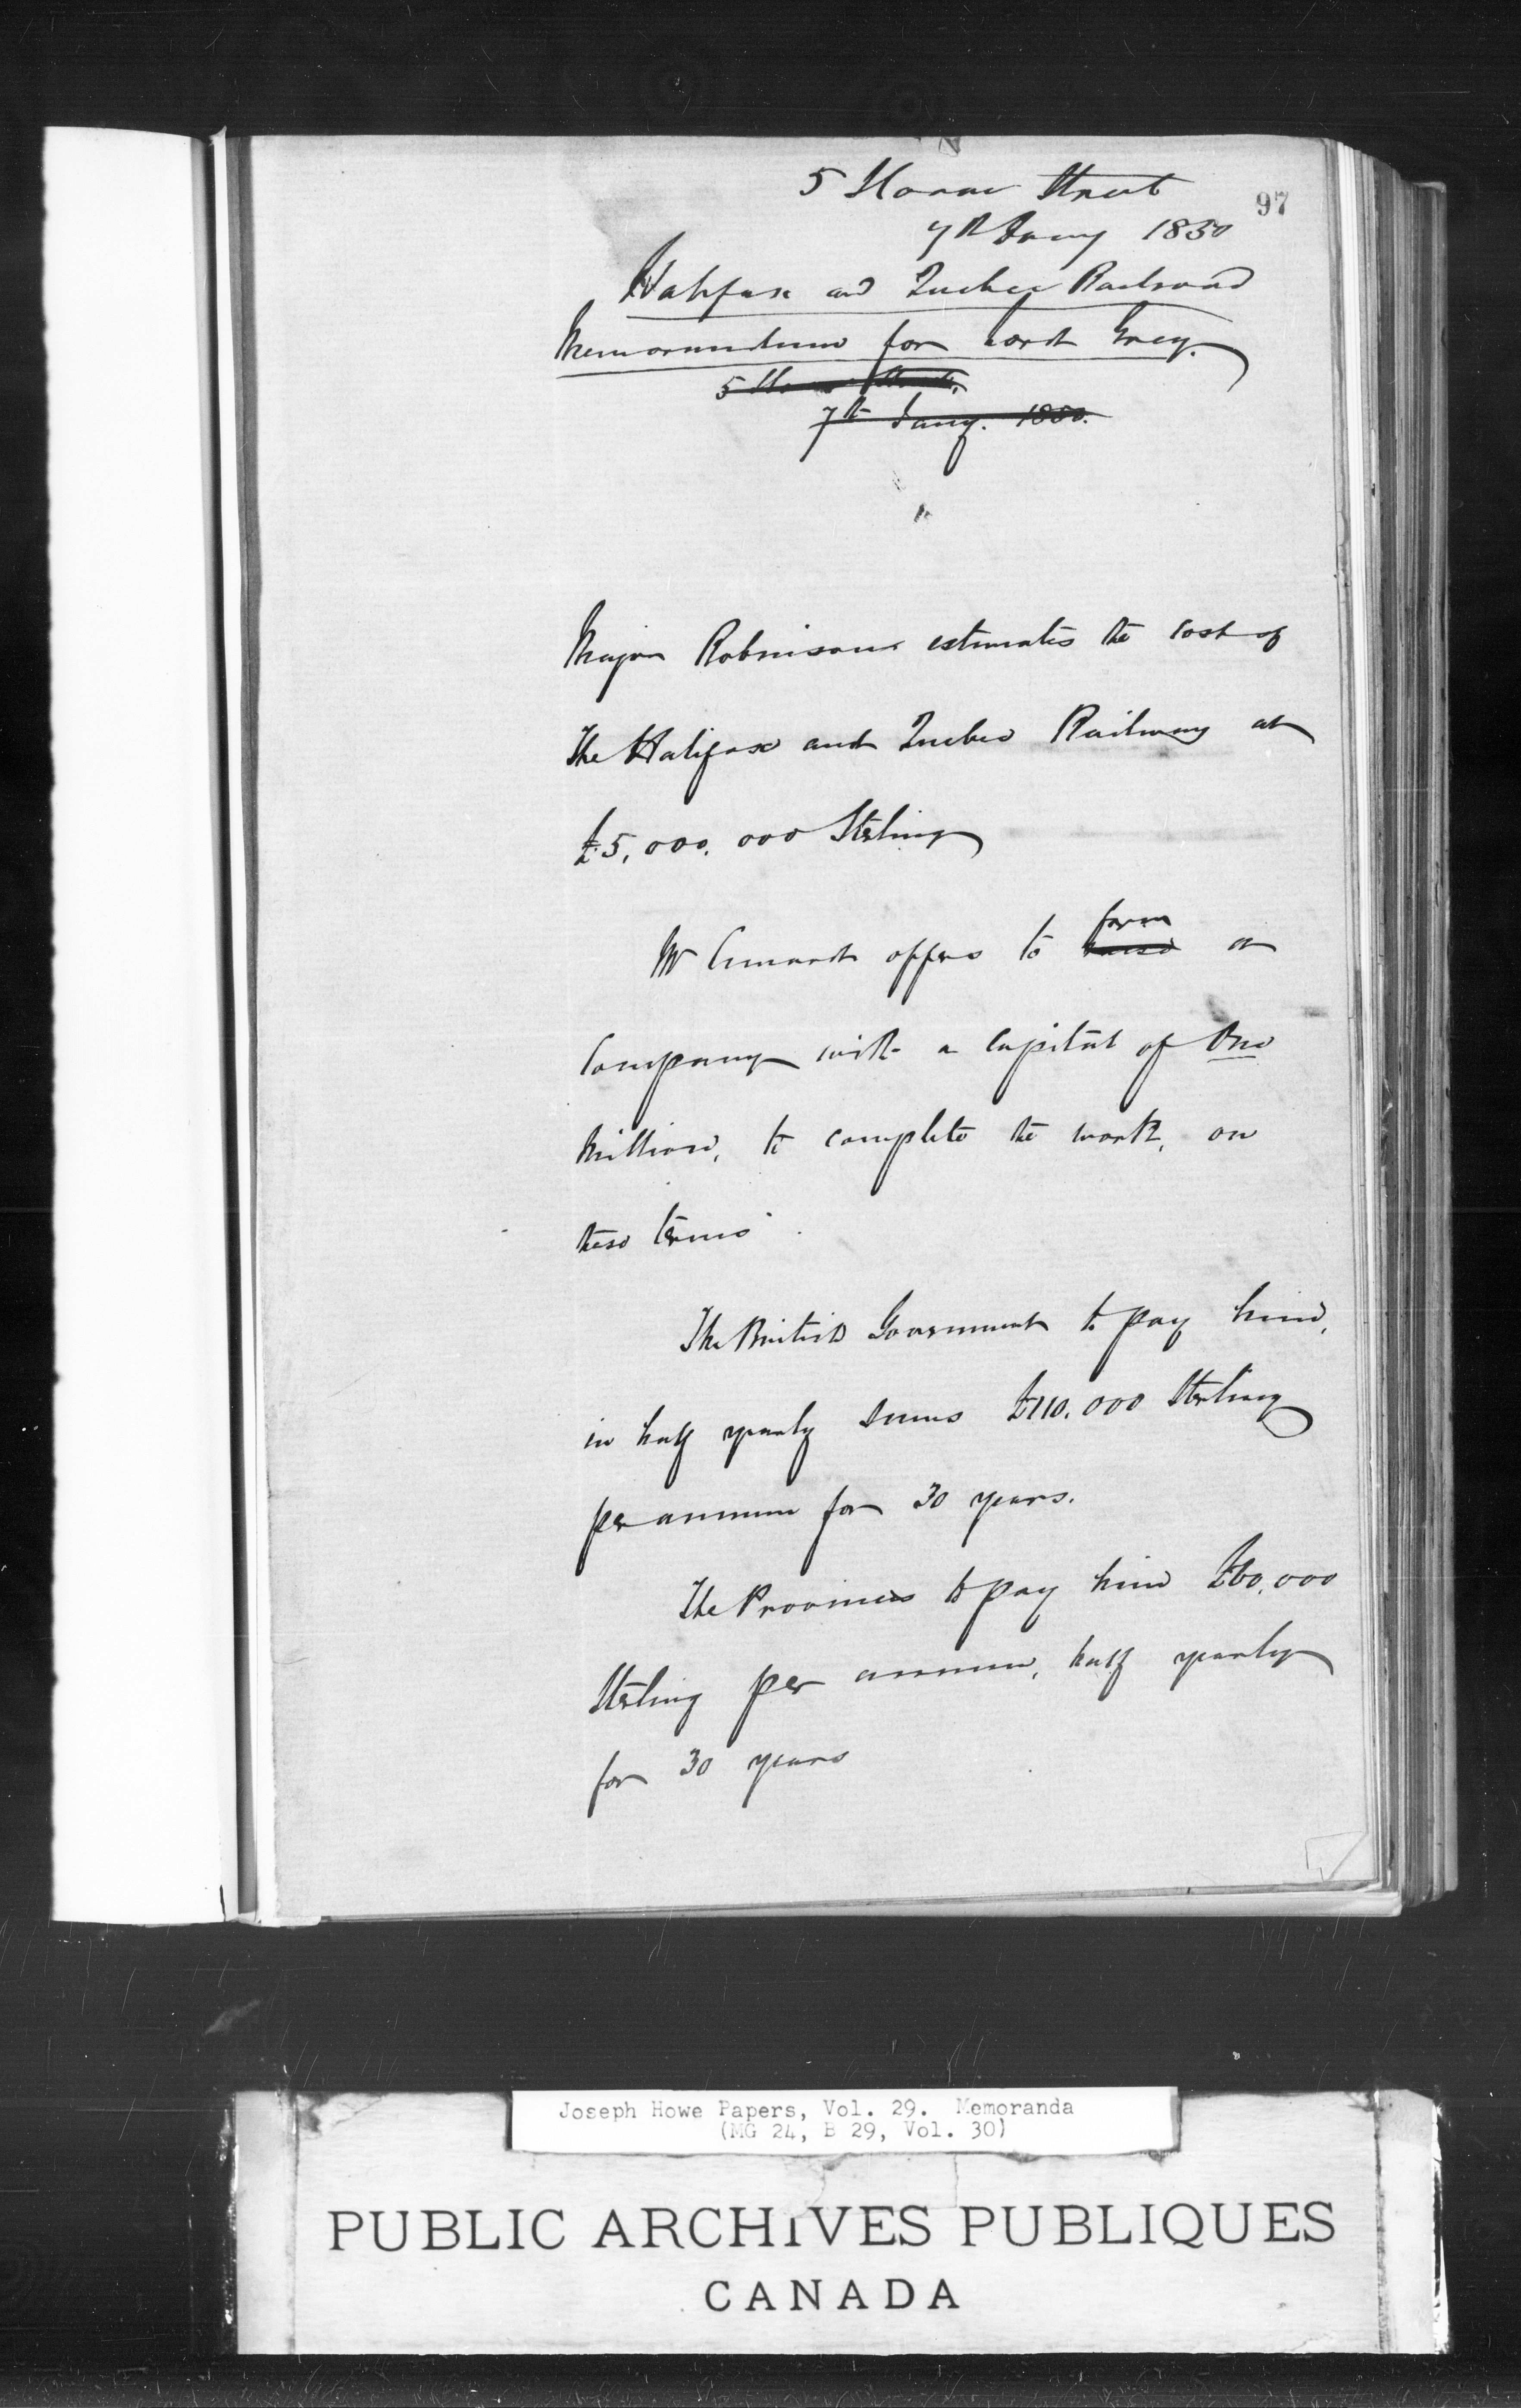 5 Sloane Street
97
7th Jany 1850
Halifax and Quebec Railroad
Memorandum for Lord Grey.
5 Sloane Street,
7th Jany. 1850.
Major Robinson estimates the cost of
The Halifax and Quebec Railway at
£5,000,000 Sterling
Mr Cunard offers to raise form a
Company with a Capital of One
Million, to complete the work, on
these terms.
The British Government to pay him,
in half yearly sums £110,000 Sterling
per annum for 30 years.
The Provinces to pay him £60,000
Sterling per annum, half yearly
for 30 years
Joseph Howe Papers, Vol. 29. Memoranda
(MG 24, B 29, Vol. 30)
PUBLIC ARCHIVES PUBLIQUES
CANADA